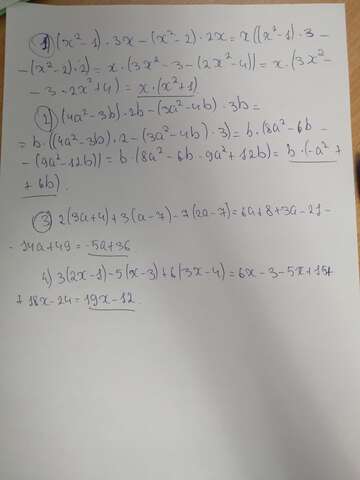 1) (x²-1)·3x-(x²-2)·2x=x((x²-1)·3-
-(x²-2)·2)=x·(3x²-3-(2x²-4))=x·(3x²-
-3-2x²+4)=x·(x²+1)
2) (4a²-3b)·2b-(3a²-4b)·3b=
=b·((4a²-3b)·2-(3a²-4b)·3)=b·(8a²-6b-
-(9a²-12b))=b·(8a²-6b-9a²+12b)=b·(-a²+
+6b).
3) 2(3a+4)+3(a-7)-7(2a-7)=6a+8+3a-21-
-14a+49=-5a+36
4) 3(2x-1)-5(x-3)+6(3x-4)=6x-3-5x+15+
+18x-24=19x-12.